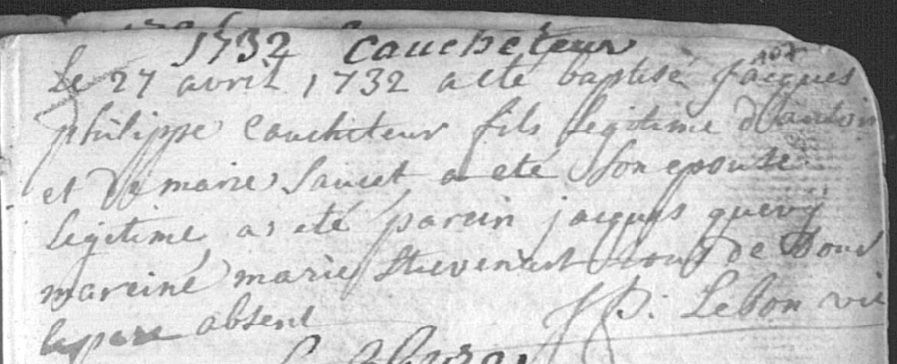 1732 Caucheteur
Le 27 avril 1732 a eté baptisé jacques
philippe Caucheteur fils legitime d'antoin
et de marie Saucet a eté Son epouse
legitime a eté parein jacques quevÿ
mareine marie Stievenart tous de Dour
le pere absent P: Lebon vic